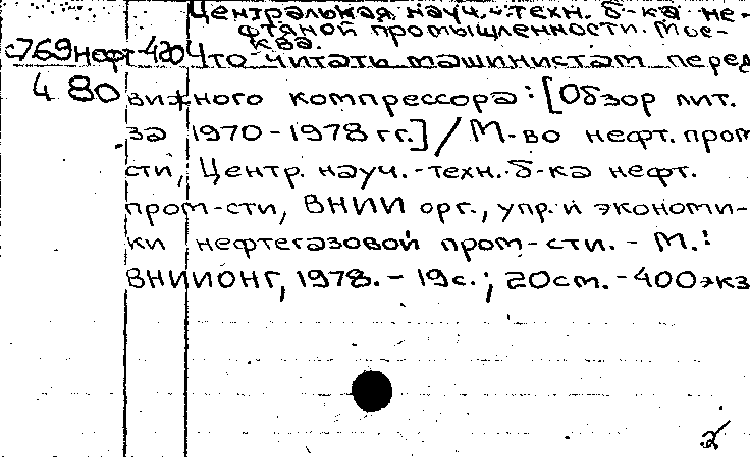 Центральная науч.-техн. б-ка не-
фтяной промышленности. Мос-
ква.
с769нефт-420 Что читать машинистам перед
480 вижного компрессора: [Обзор лит.
за 1970-1978 гг.] / М-во нефт. пром
сти, Центр. науч.-техн. б-ка нефт.
пром-сти, ВНИИ орг., упр. и экономи-
ки нефтегазовой пром-сти. - М.:
ВНИИОНГ, 1978. - 19 с.; 20 см. - 400 экз
2